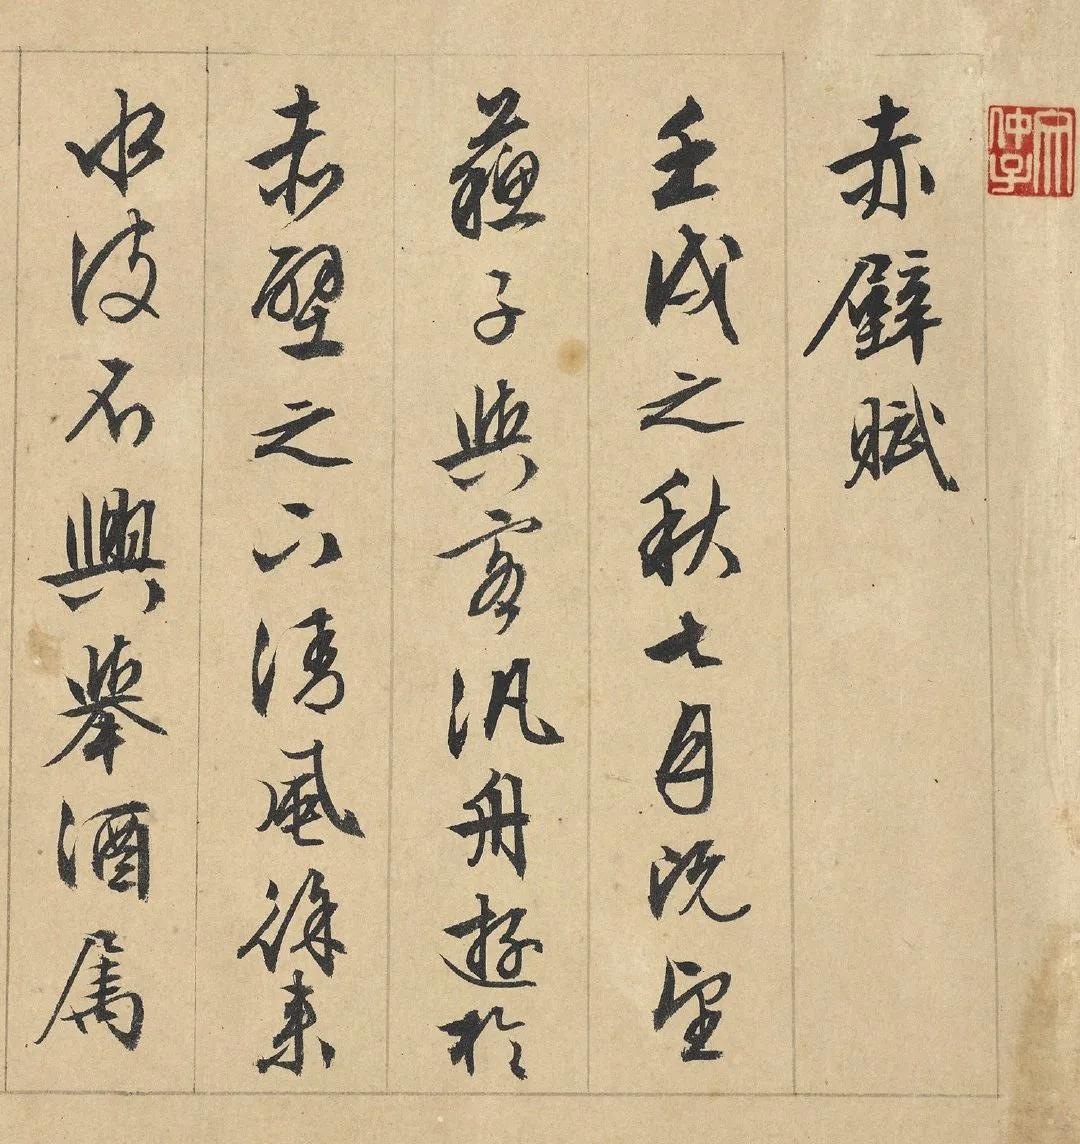 赤壁賦
壬戌之秋七月既望
蘇子與客汎舟遊於
赤壁之下清風徐來
水波不興舉酒屬